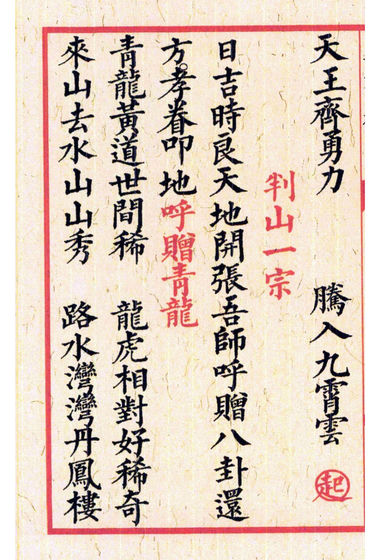 天王齊勇力 騰入九霄雲 起
判山一宗
日吉時良天地開張吾師呼贈八卦還
方。孝眷叩地呼贈青龍
青龍黃道世間稀 龍虎相對好稀奇
來山去水山山秀 路水灣灣丹鳳樓